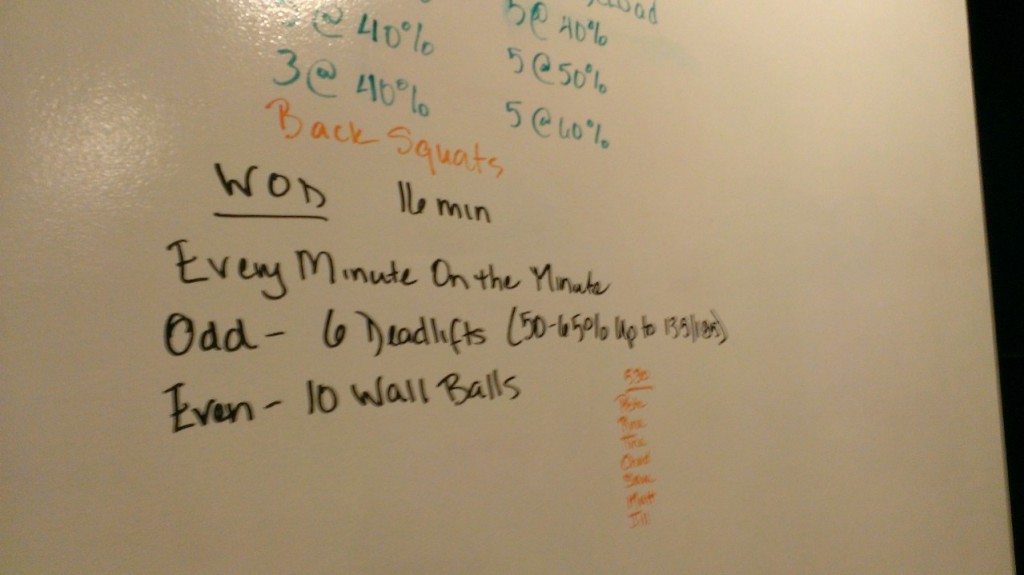 @ 40% 5@ 40%
3@ 40% 5@50%
5@60%
Back Squats
WOD 16 min
Every Minute On the Minute
Odd - 6 Deadlifts (50-65% Up to 135/185)
Even - 10 Wall Balls
530
Pete
Chad
Jill